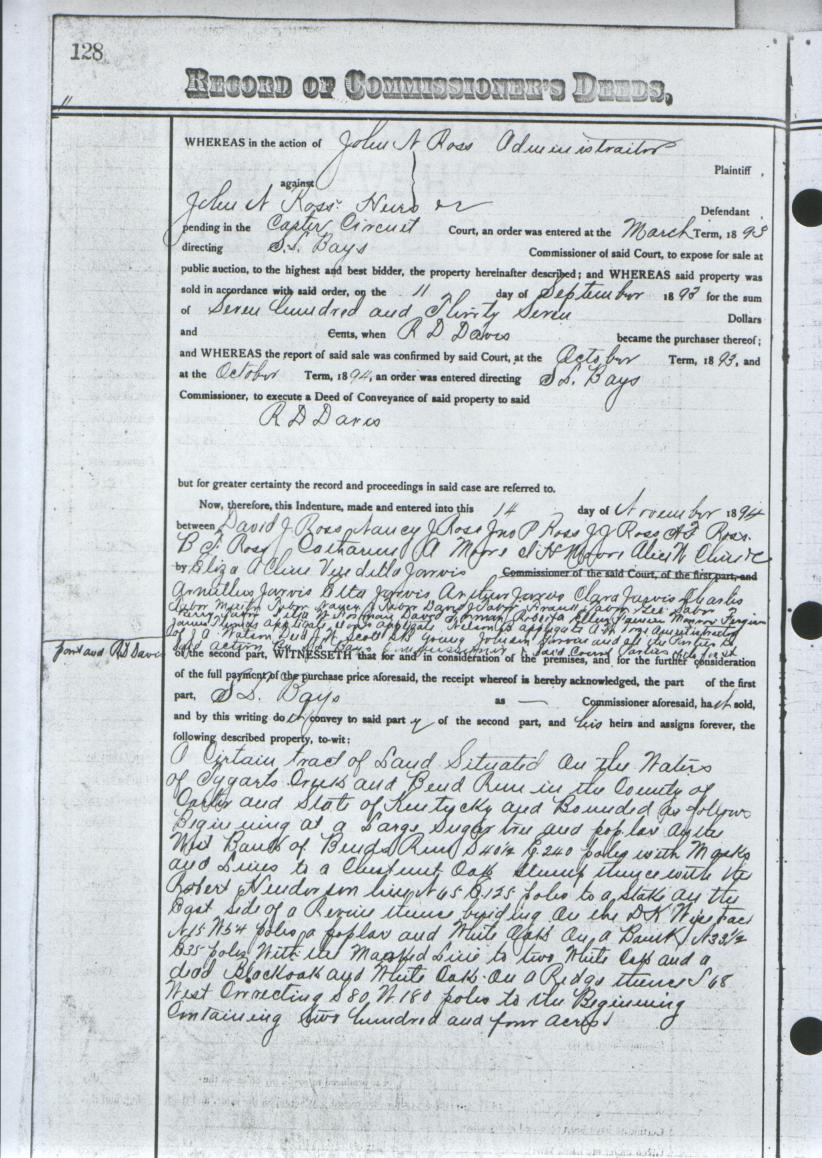 128
RECORD OF COMMISSIONER'S DEEDS,
WHEREAS in the action of John N Ross Administraitor
Plaintiff ,
against
John N Ross' Heirs
Defendant ,
pending in the Carter Circuit Court, an order was entered at the March Term, 1893
directing S.S. Bays Commissioner of said Court, to expose for sale at
public auction, to the highest and best bidder, the property hereinafter described; and WHEREAS said property was
sold in accordance with said order, on the 11 day of September 1893 for the sum
of Seven hundred and Thirty Seven Dollars
and Cents, when R D Davis became the purchaser thereof;
and WHEREAS the report of said sale was confirmed by said Court, at the October Term, 1893, and
at the October Term, 1894, an order was entered directing S S. Bays
Commissioner, to execute a Deed of Conveyance of said property to said
R D Davis
but for greater certainty the record and proceedings in said case are referred to.
Now, therefore, this Indenture, made and entered into this 14 day of November 1894
between David J Ross Nancy J Ross Jno P Ross J J Ross A F Ross
B F Ross Catharine A Moore Moore Alice N Cline
by Eliza A Cline Jarvis Commissioner of the said Court, of the first part, and
Jarvis Etta Jarvis Arthur Jarvis Clara Jarvis Charles
Tabor Tabor Nancy Tabor David Tabor Tabor Lee Tabor
Norman David Norman Roberta
James Applegate
J A Watson Scott Young
said action Bays Commissioner of Said Court Parties of the first
part and R D Davis
of the second part, WITNESSETH that for and in consideration of the premises, and for the further consideration
of the full payment of the purchase price aforesaid, the receipt whereof is hereby acknowledged, the part of the first
part, S S. Bays as — Commissioner aforesaid, hath sold,
and by this writing doth convey to said party of the second part, and his heirs and assigns forever, the
following described property, to-wit:
A Cirtain tract of Land Situated On the Waters
of Tygarts Creek and Bend Run in the County of
Carter and State of Kentucky and Bounded as follows
Begining at a Large Sugar tree and poplar on the
West Bank of Bends Run S 40½ E 240 poles with Marks
and Lines to a Chestnut Oak Stump thence with the
Robert Henderson line N 65 E 125 poles to a Stake on the
East side of a Revine thence binding On the D K Wise
N 15 W 54 poles a poplar and White Oak On a Bank N 33½
E 35 poles With the Marked Line to two White Oak and a
dead Blackoak and White Oak On a Ridge thence S 68
West Correcting S 80 W 180 poles to the Beginning
Containing two hundred and four acres